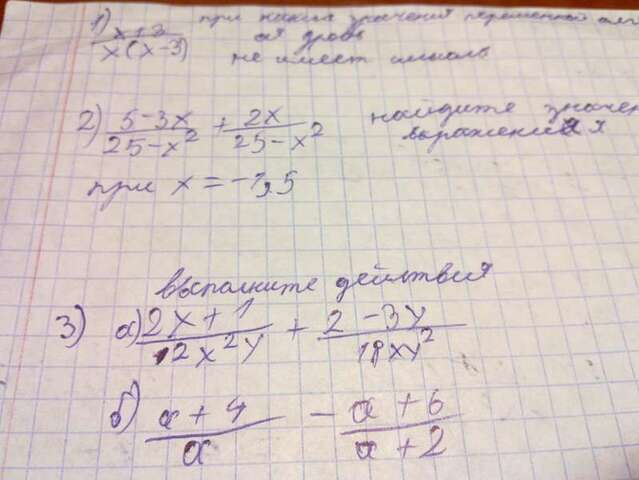 1) (x+3)/(x(x-3)) при каких значениях переменной алг
ая дробь
не имеет смысла
2) (5-3x)/(25-x²) + (2x)/(25-x²) найдите значен
выражения
при x = -1,5
выполните действия
3) а) (2x+1)/(12x²y) + (2-3y)/(18xy²)
б) (a+4)/a - (a+6)/(a+2)